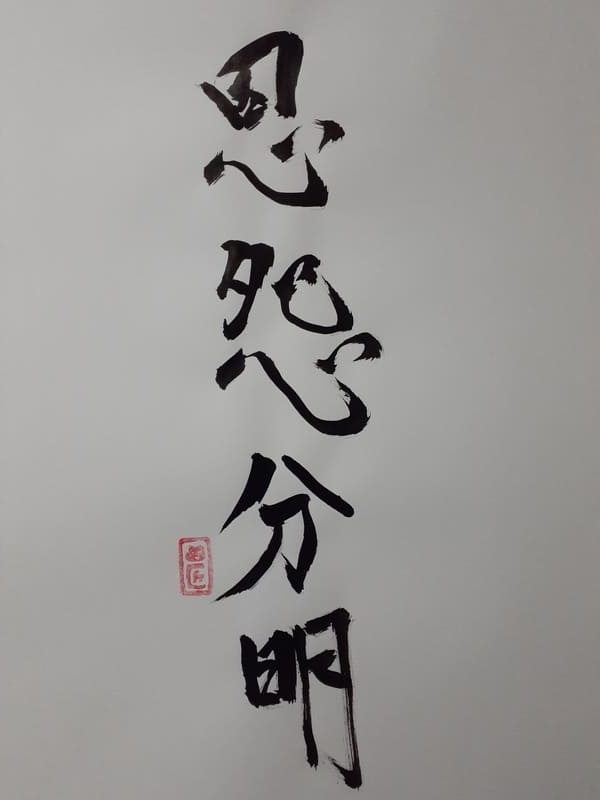 恩怨分明